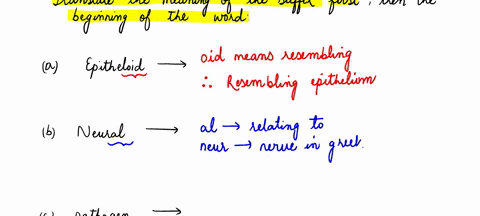 Translate the meaning of the suffix first, then the
beginning of the word.
(a) Epitheloid → oid means resembling
∴ Resembling epithelium
(b) Neural → al → relating to
neur → nerve in greek.
(c) pathogen →